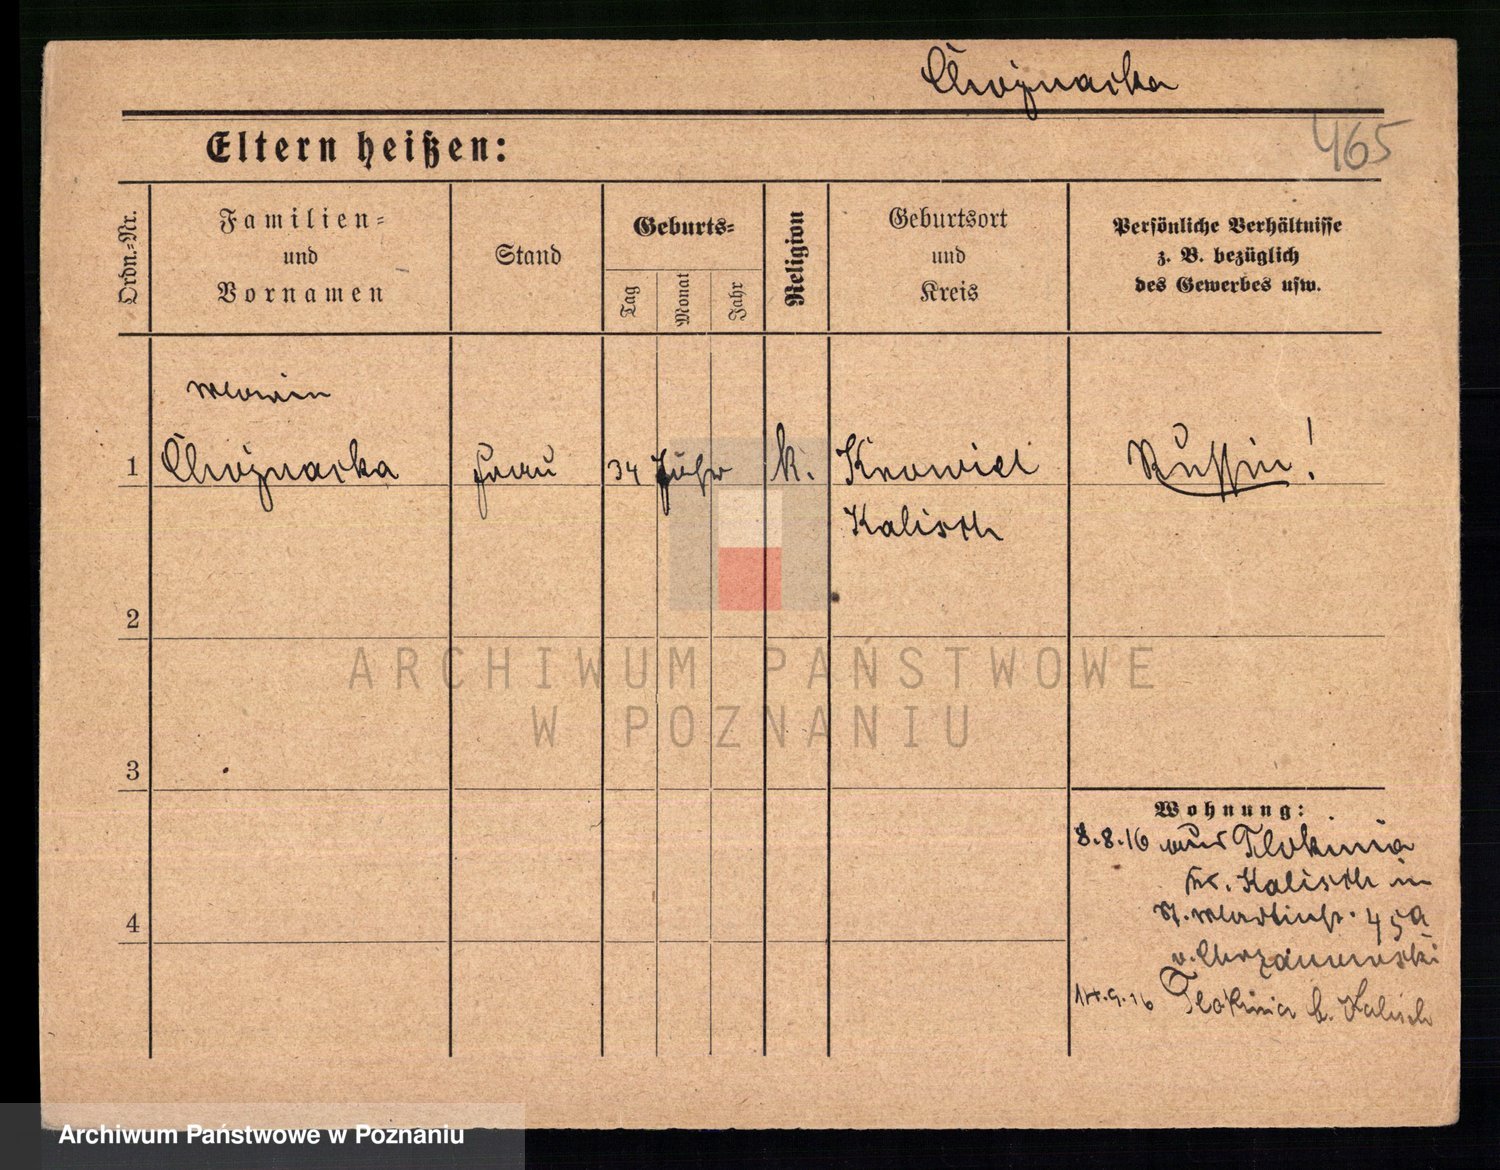 Chojnacka
465
Eltern heißen:
Ordn.-Nr.
Familien-
und
Vornamen
Stand
Geburts-
Tag
Monat
Jahr
Religion
Geburtsort
und
Kreis
Persönliche Verhältnisse
z. B. bezüglich
des Gewerbes usw.
1
Chojnacka
Frau
34 Jahr
k.
Kalisch
Russin!
2
ARCHIWUM PAŃSTWOWE
W POZNANIU
3
Wohnung:
8.8.16 aus Tlokinia
Kr. Kalisch in
St. Martinstr. 45a
b. Chrzanowski
4
14.9.16 Tlokinia b. Kalisch
Archiwum Państwowe w Poznaniu